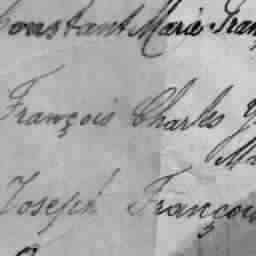 Constant Marie Fran
François Charles
Ma
Joseph François